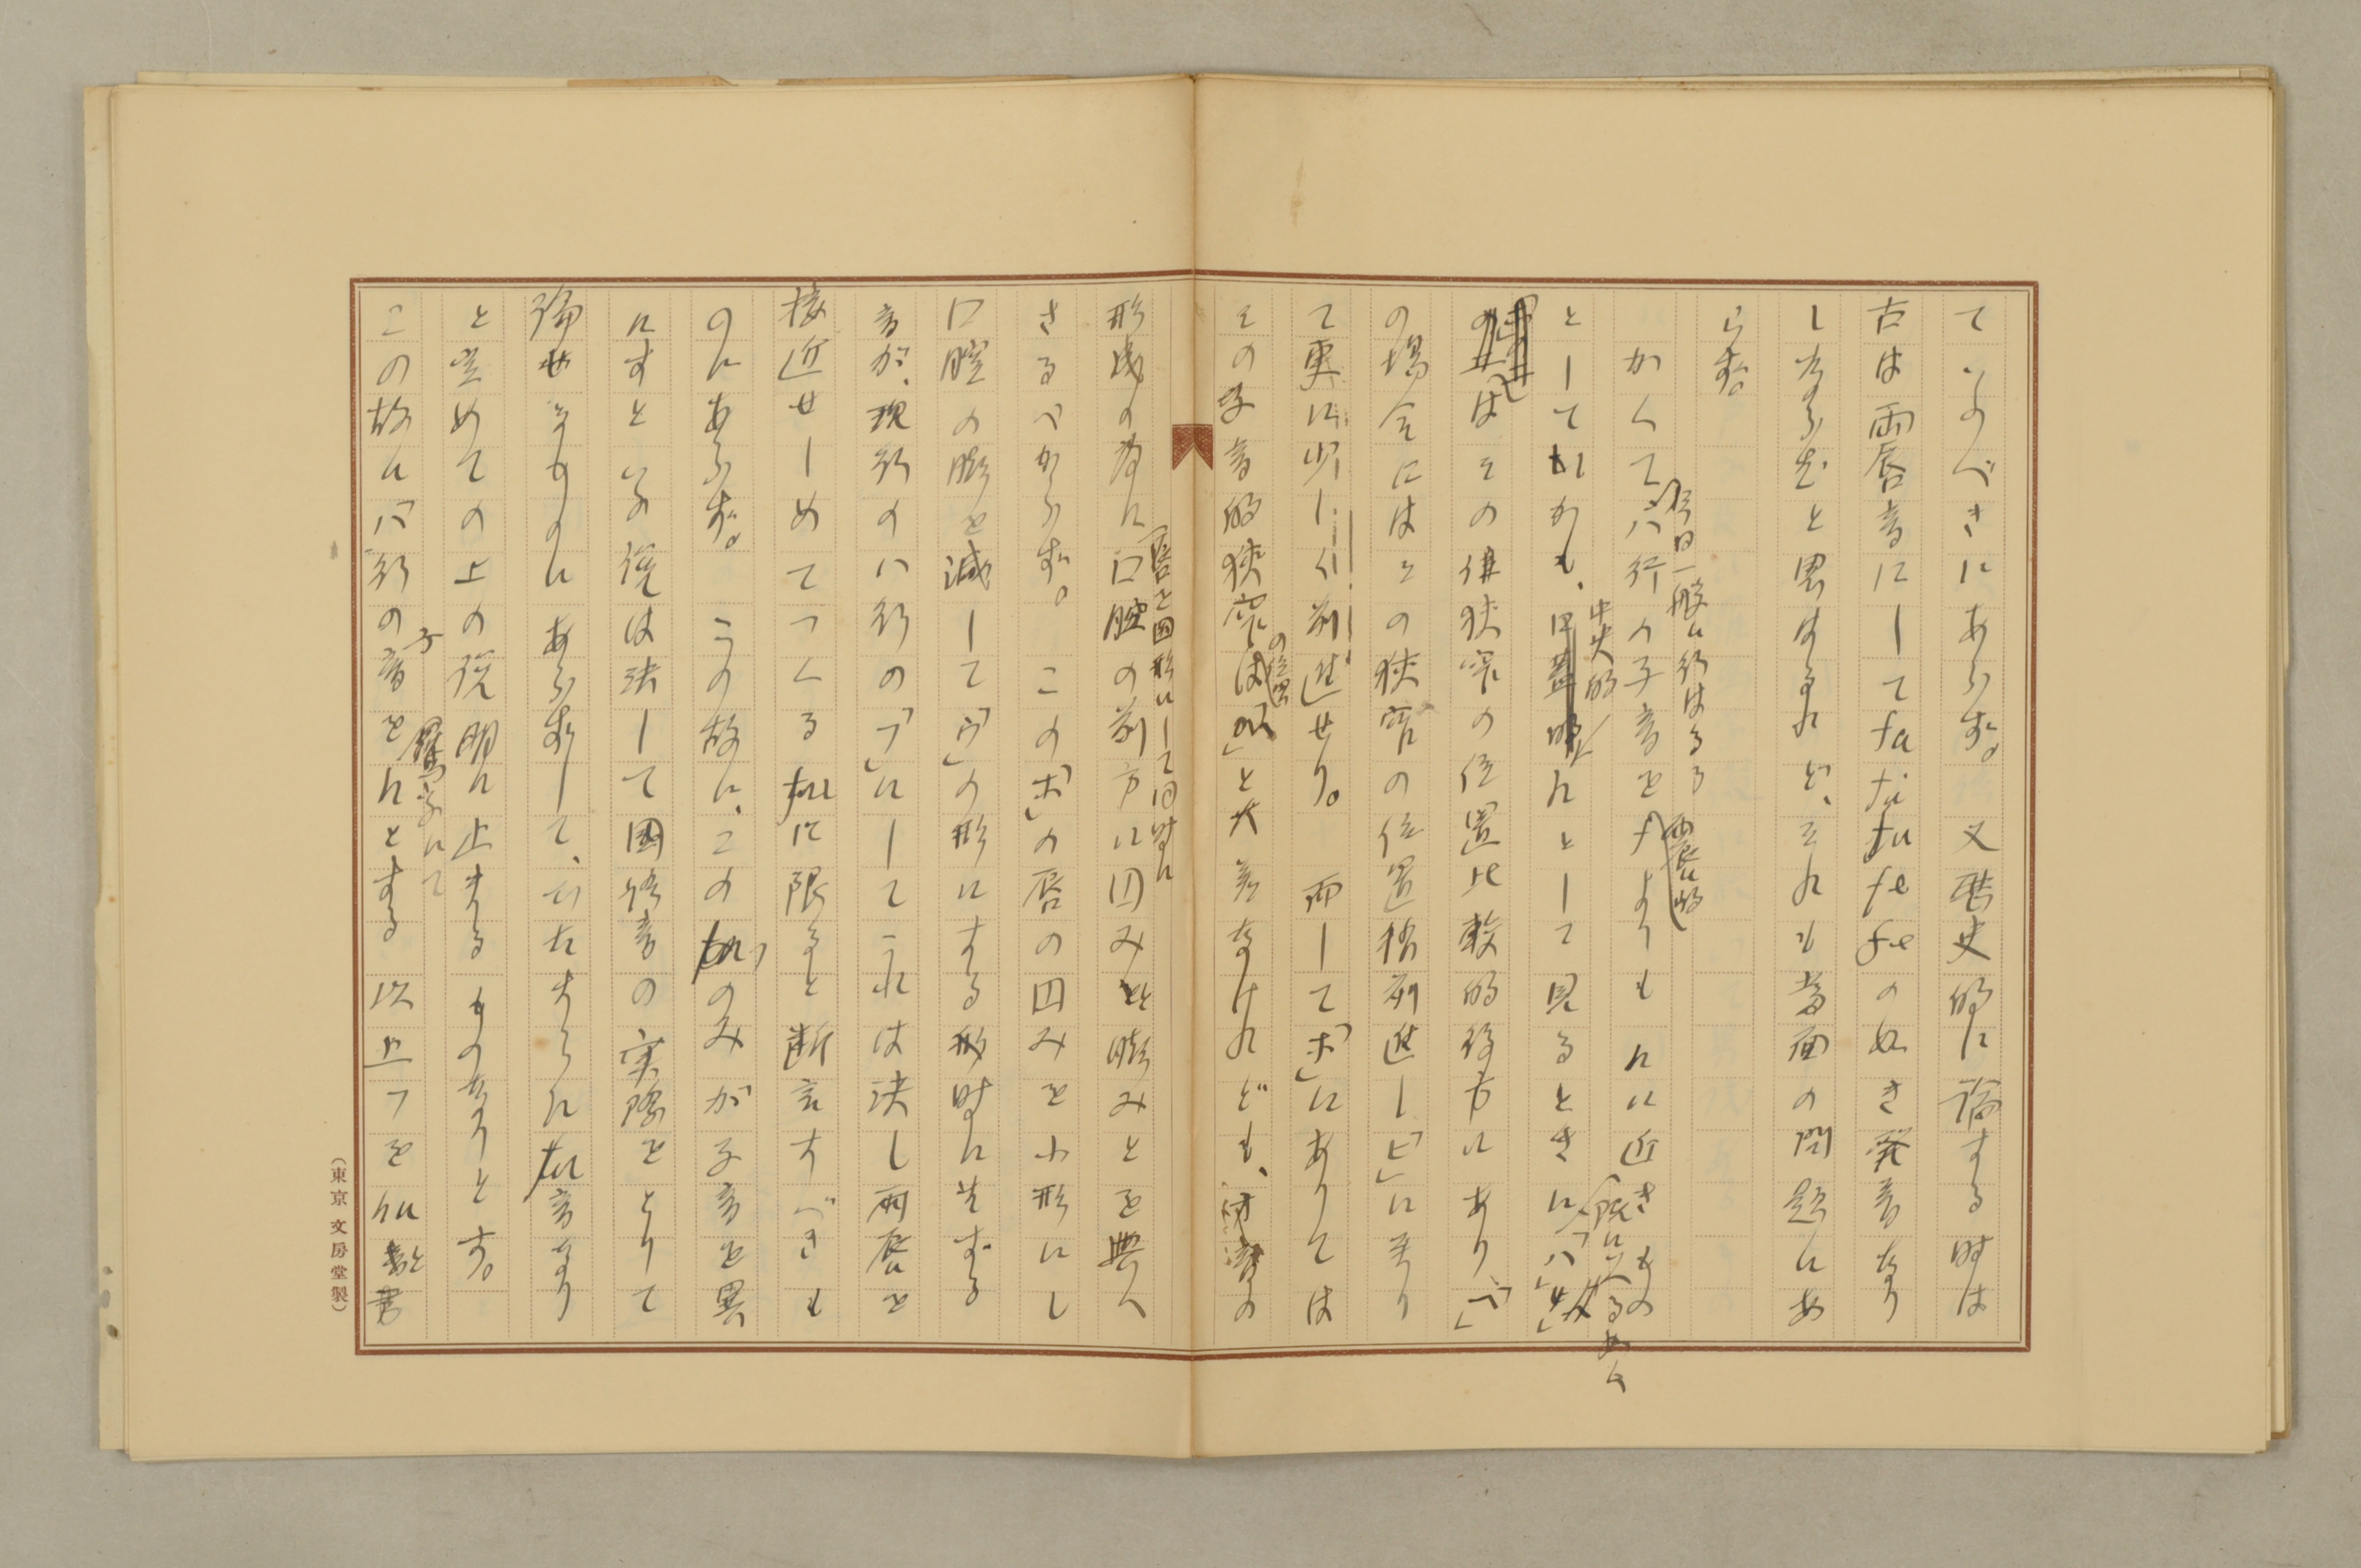 ていふべきにあらず。又歴史的に論する時は
古は両唇音にして fa fi fu fe fo の如き発音なり
しならむと思はるれど、それは当面の問題にあ
らず。
今日一般に行はるる
かくてハ行の子音を f よりも h に近きもの
中央的
としてしかも、 h として見るときに「ハ」
のはその狭窄の位置比較的後方にあり「ヘ」
の場合にはその狭窄の位置稍前進し「ヒ」に至り
て更に少し前進せり。而して「ホ」にありては
の位置
その子音的狭窄は「ハ」と大差なけれども、の
唇を円形にして同時に
形成の為に口腔の前方に凹みと膨みとを与へ
ざるべからず。この「ホ」の唇の凹みを小形にし
口腔の膨を減して「ウ」の形にする時に生ずる
音が、現行のハ行の「フ」にしてこれは決し両唇を
接近せしめてつくる fu に限ると断言すべきも
のにあらず。この故に、この fu のみが子音を異
にすといふ説は決して国語音の実際をとりて
論せるものにあらずして、
と定めての上の説明に止まるものなりとす。
子
この故にハ行の音を h とする以上フを hu と書
(東京 文房堂製)